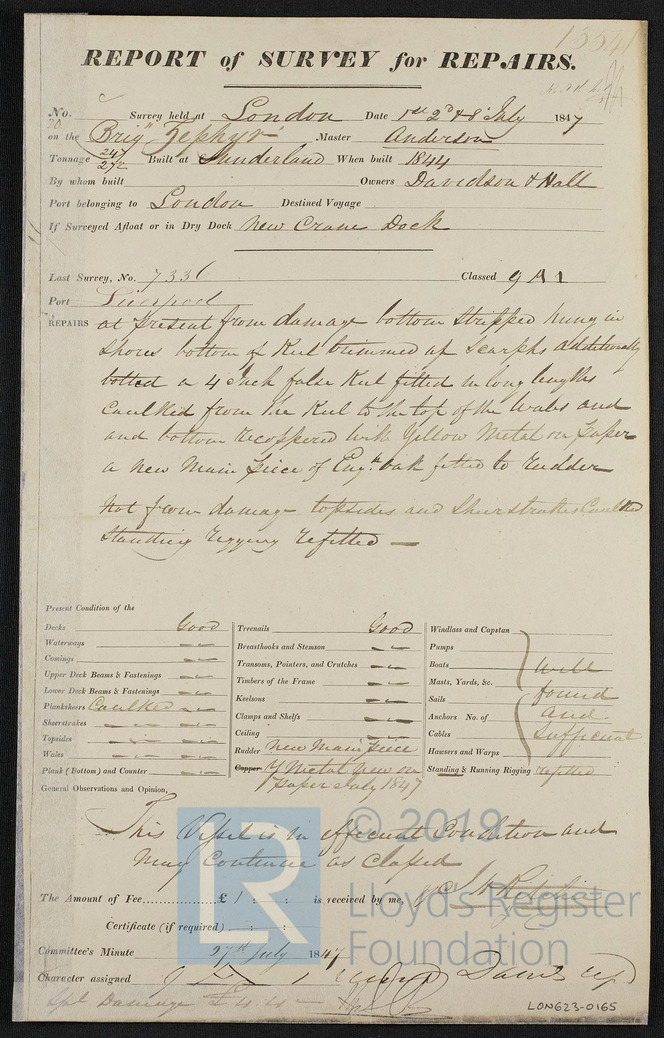 REPORT of SURVEY for REPAIRS.
No. Survey held at London Date 1st 2d & 8 July 1847
on the Brig "Zephyr" Master Anderson
Tonnage 247 272 Built at Sunderland When built 1844
By whom built Owners Davidson & Hall
Port belonging to London Destined Voyage
If Surveyed Afloat or in Dry Dock New Crane Dock
Last Survey, No. 7336 Classed 9 A 1
Port Liverpool
REPAIRS at Present from damage bottom stripped hung in
Shores bottom of Keel trimmed up Scarphs additionally
bolted a 4 Inch false Keel fitted in long lengths
Caulked from the Keel to the top of the Wales and
and bottom recoppered with Yellow Metal on paper
a new Main piece of Engh. oak fitted to rudder
Not from damage topsides and Sheerstrakes Caulked
Standing rigging refitted —
Present Condition of the
Decks Good
Waterways
Comings
Upper Deck Beams & Fastenings
Lower Deck Beams & Fastenings
Planksheers Caulked
Sheerstrakes
Topsides
Wales
Plank (Bottom) and Counter
Treenails Good
Breasthooks and Stemson
Transoms, Pointers, and Crutches
Timbers of the Frame
Keelsons
Clamps and Shelfs
Ceiling
Rudder New Main piece
Copper Y Metal New on
paper July 1847
Windlass and Capstan
Pumps
Boats
Masts, Yards, &c.
Sails
Anchors No. of
Cables
Hawsers and Warps
Well
found
and
Sufficient
Standing & Running Rigging refitted
General Observations and Opinion,
This Vessel is in efficient Condition and
May Continue as Classed
The Amount of Fee £ 1 : : is received by me,
Certificate (if required) : :
Committee's Minute 27th July 1847
Character assigned
Spl Damage £ 4. 4 —
LON623-0165
© 2019
Lloyd's Register
Foundation
LR